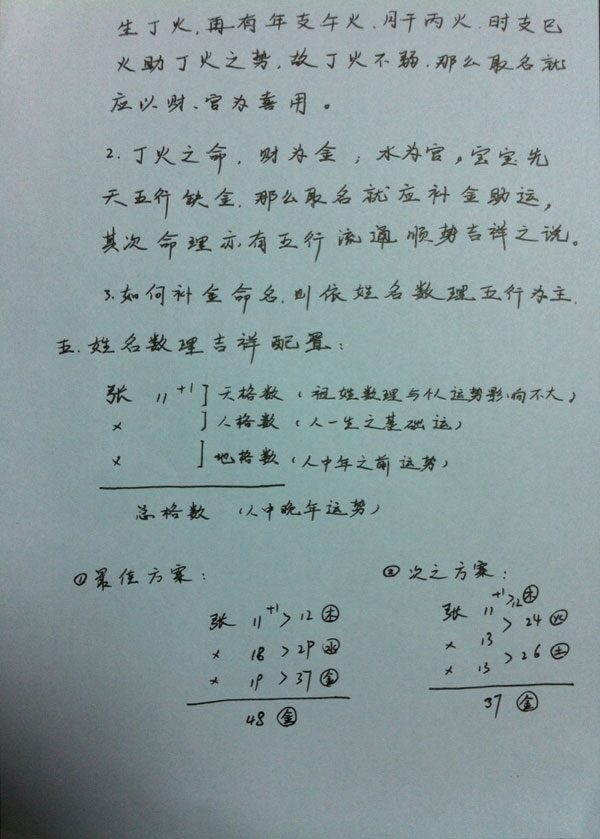 生丁火，再有年支午火.月干丙火.时支巳
火助丁火之势，故丁火不弱.那么取名就
应以财、官为喜用。
2.丁火之命，财为金；水为官。宝宝先
天五行缺金.那么取名就应补金助运，
其次命理亦有五行流通顺势吉祥之说。
3.如何补金命名.则依姓名数理五行为主.
五.姓名数理吉祥配置：
张 11 +1 ] 天格数（祖姓数理与个人运势影响不大）
× ] 人格数（人一生之基础运）
× ] 地格数（人中年之前运势）
总格数（人中晚年运势）
①最佳方案：
张 11 +1 > 12 木
× 18 > 29 水
× 19 > 37 金
48 金
②次之方案：
张 11 +1 > 12 木
× 13 > 24 火
× 13 > 26 土
37 金